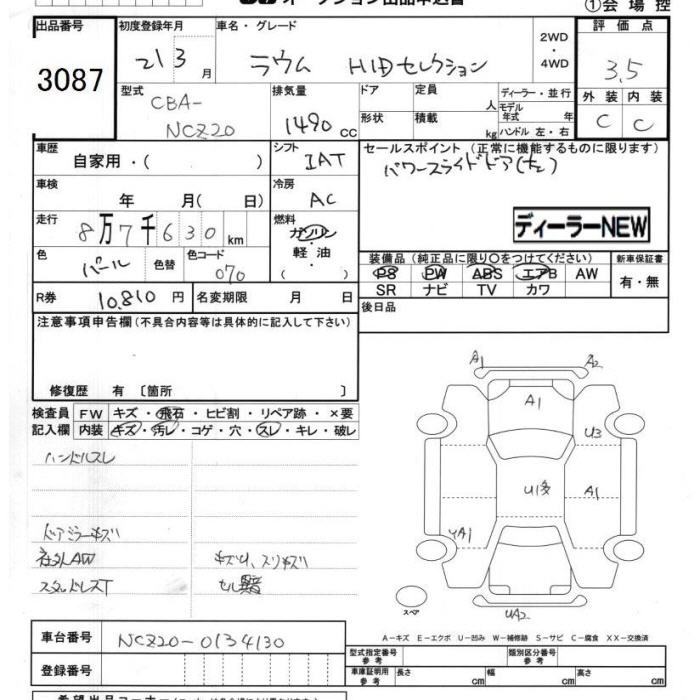 オークション出品申込書
①会場控
出品番号
3087
初度登録年月
21 3 月
車名・グレード
ラウム HIDセレクション
2WD・4WD
評価点
3.5
外装 内装
C C
型式
CBA-NCZ20
排気量
1490 cc
ドア
形状
定員 人
積載 kg
ディーラー・並行
モデル年式 年
ハンドル 左・右
車歴
自家用・( )
シフト
IAT
セールスポイント(正常に機能するものに限ります)
パワースライドドア(左)
車検
年 月( 日)
冷房
AC
ディーラーNEW
走行
8万7千630km
燃料
ガソリン
軽油
( )
色
パール
色替
色コード
070
装備品(純正品に限り○をつけてください)
PS PW ABS エアB AW
SR ナビ TV カワ
新車保証書
有・無
R券
10,810 円
名変期限 月 日
後日品
注意事項申告欄(不具合内容等は具体的に記入して下さい)
修復歴 有〔箇所 〕
検査員記入欄
FW キズ・飛石・ヒビ割・リペア跡・×要
内装 キズ・汚レ・コゲ・穴・スレ・キレ・破レ
ハンドルスレ
ドアミラーキズ
社外AW
キズU、スリキズ
スタッドレスT
A1 A2
A1
U3
U1多
A1
YA1
UA2
スペア
A-キズ E-エクボ U-凹み W-補修跡 S-サビ C-腐食 XX-交換済
車台番号
NCZ20-0134130
登録番号
型式指定番号 参考
類別区分番号 参考
車庫証明用 参考
長さ cm
幅 cm
高さ cm
希望出品コーナー